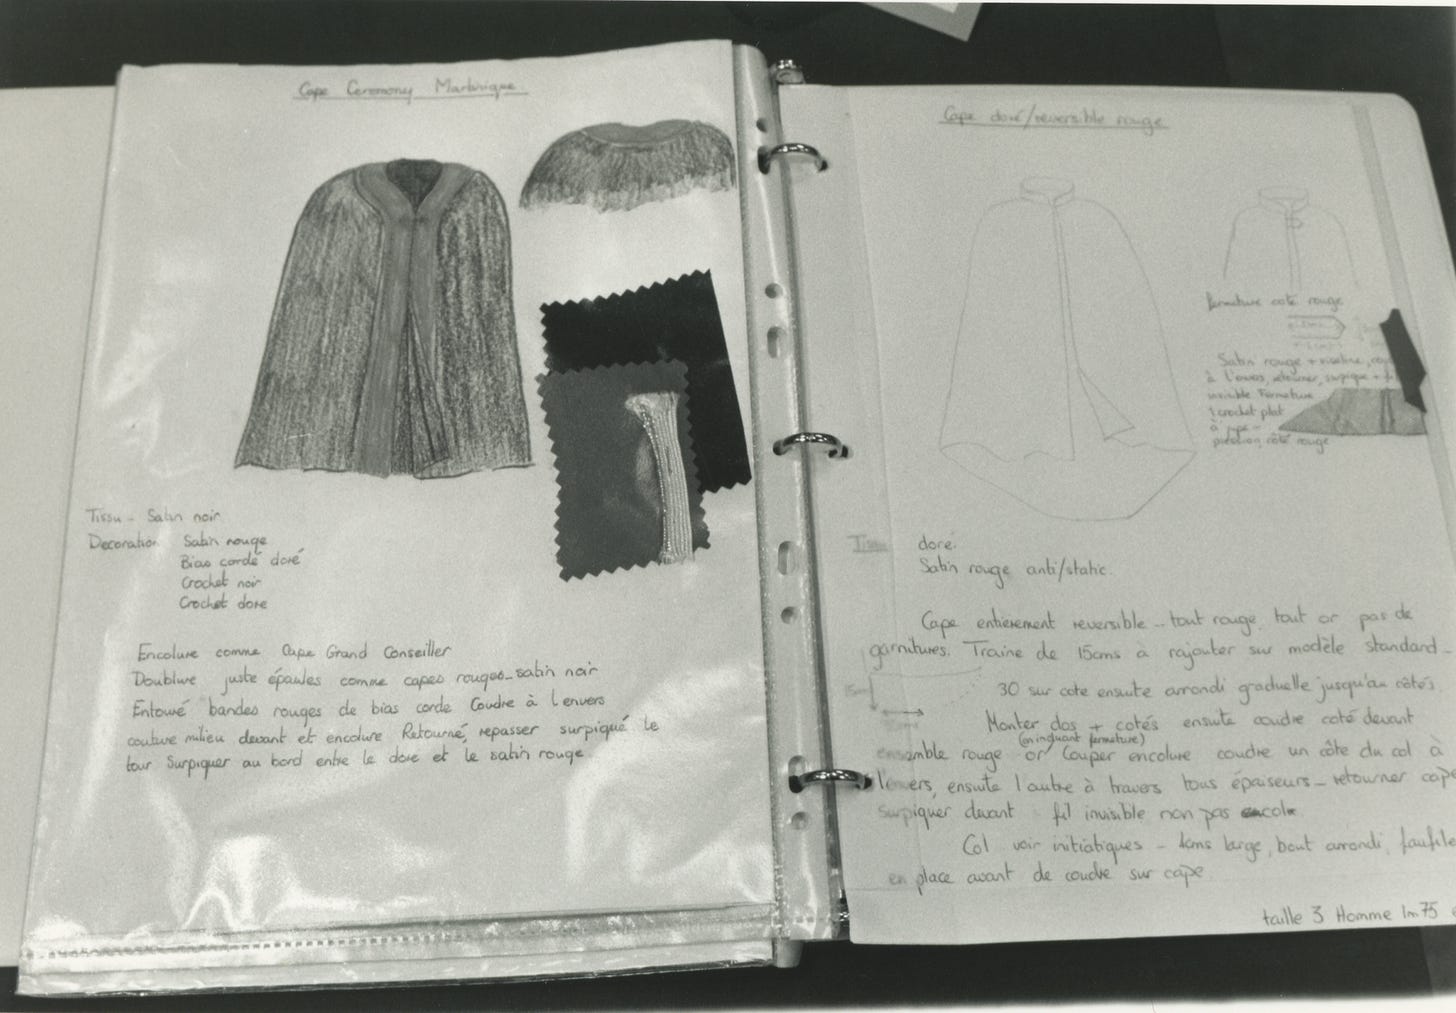 Cape Ceremony Martinique
Tissu - Satin noir
Decoration Satin rouge
Biais cordé doré
Crochet noir
Crochet dore
Encolure comme Cape Grand Conseiller
Doublure juste épaules comme capes rouges - satin noir
Entouré bandes rouges de bias corde Coudre à l'envers
couture milieu devant et encolure Retourné, repasser surpiqué le
tour Surpiquer au bord entre le dore et le satin rouge
Cape doré/reversible rouge
Fermeture coté rouge
Satin rouge + viseline,
à l'envers, retourner, surpique +
invisible Fermeture
1 crochet plat
à jupe -
côté rouge
Tissu doré.
Satin rouge anti/static.
Cape entièrement reversible - tout rouge, tout or pas de
garnitures. Traine de 15cms à rajouter sur modèle standard -
15cm
30 sur cote ensuite arrondi graduelle jusqu'au côtés
Monter dos + cotés ensuite coudre coté devant
(en incluant fermeture)
ensemble rouge or Couper encolure coudre un côte du col à
l'envers, ensuite l'autre à travers tous épaiseurs - retourner cape
Surpiquer devant fil invisible non pas encol
Col voir initiatiques - 4cms large, bout arrondi, faufile
en place avant de coudre sur cape.
taille 3 Homme 1m75